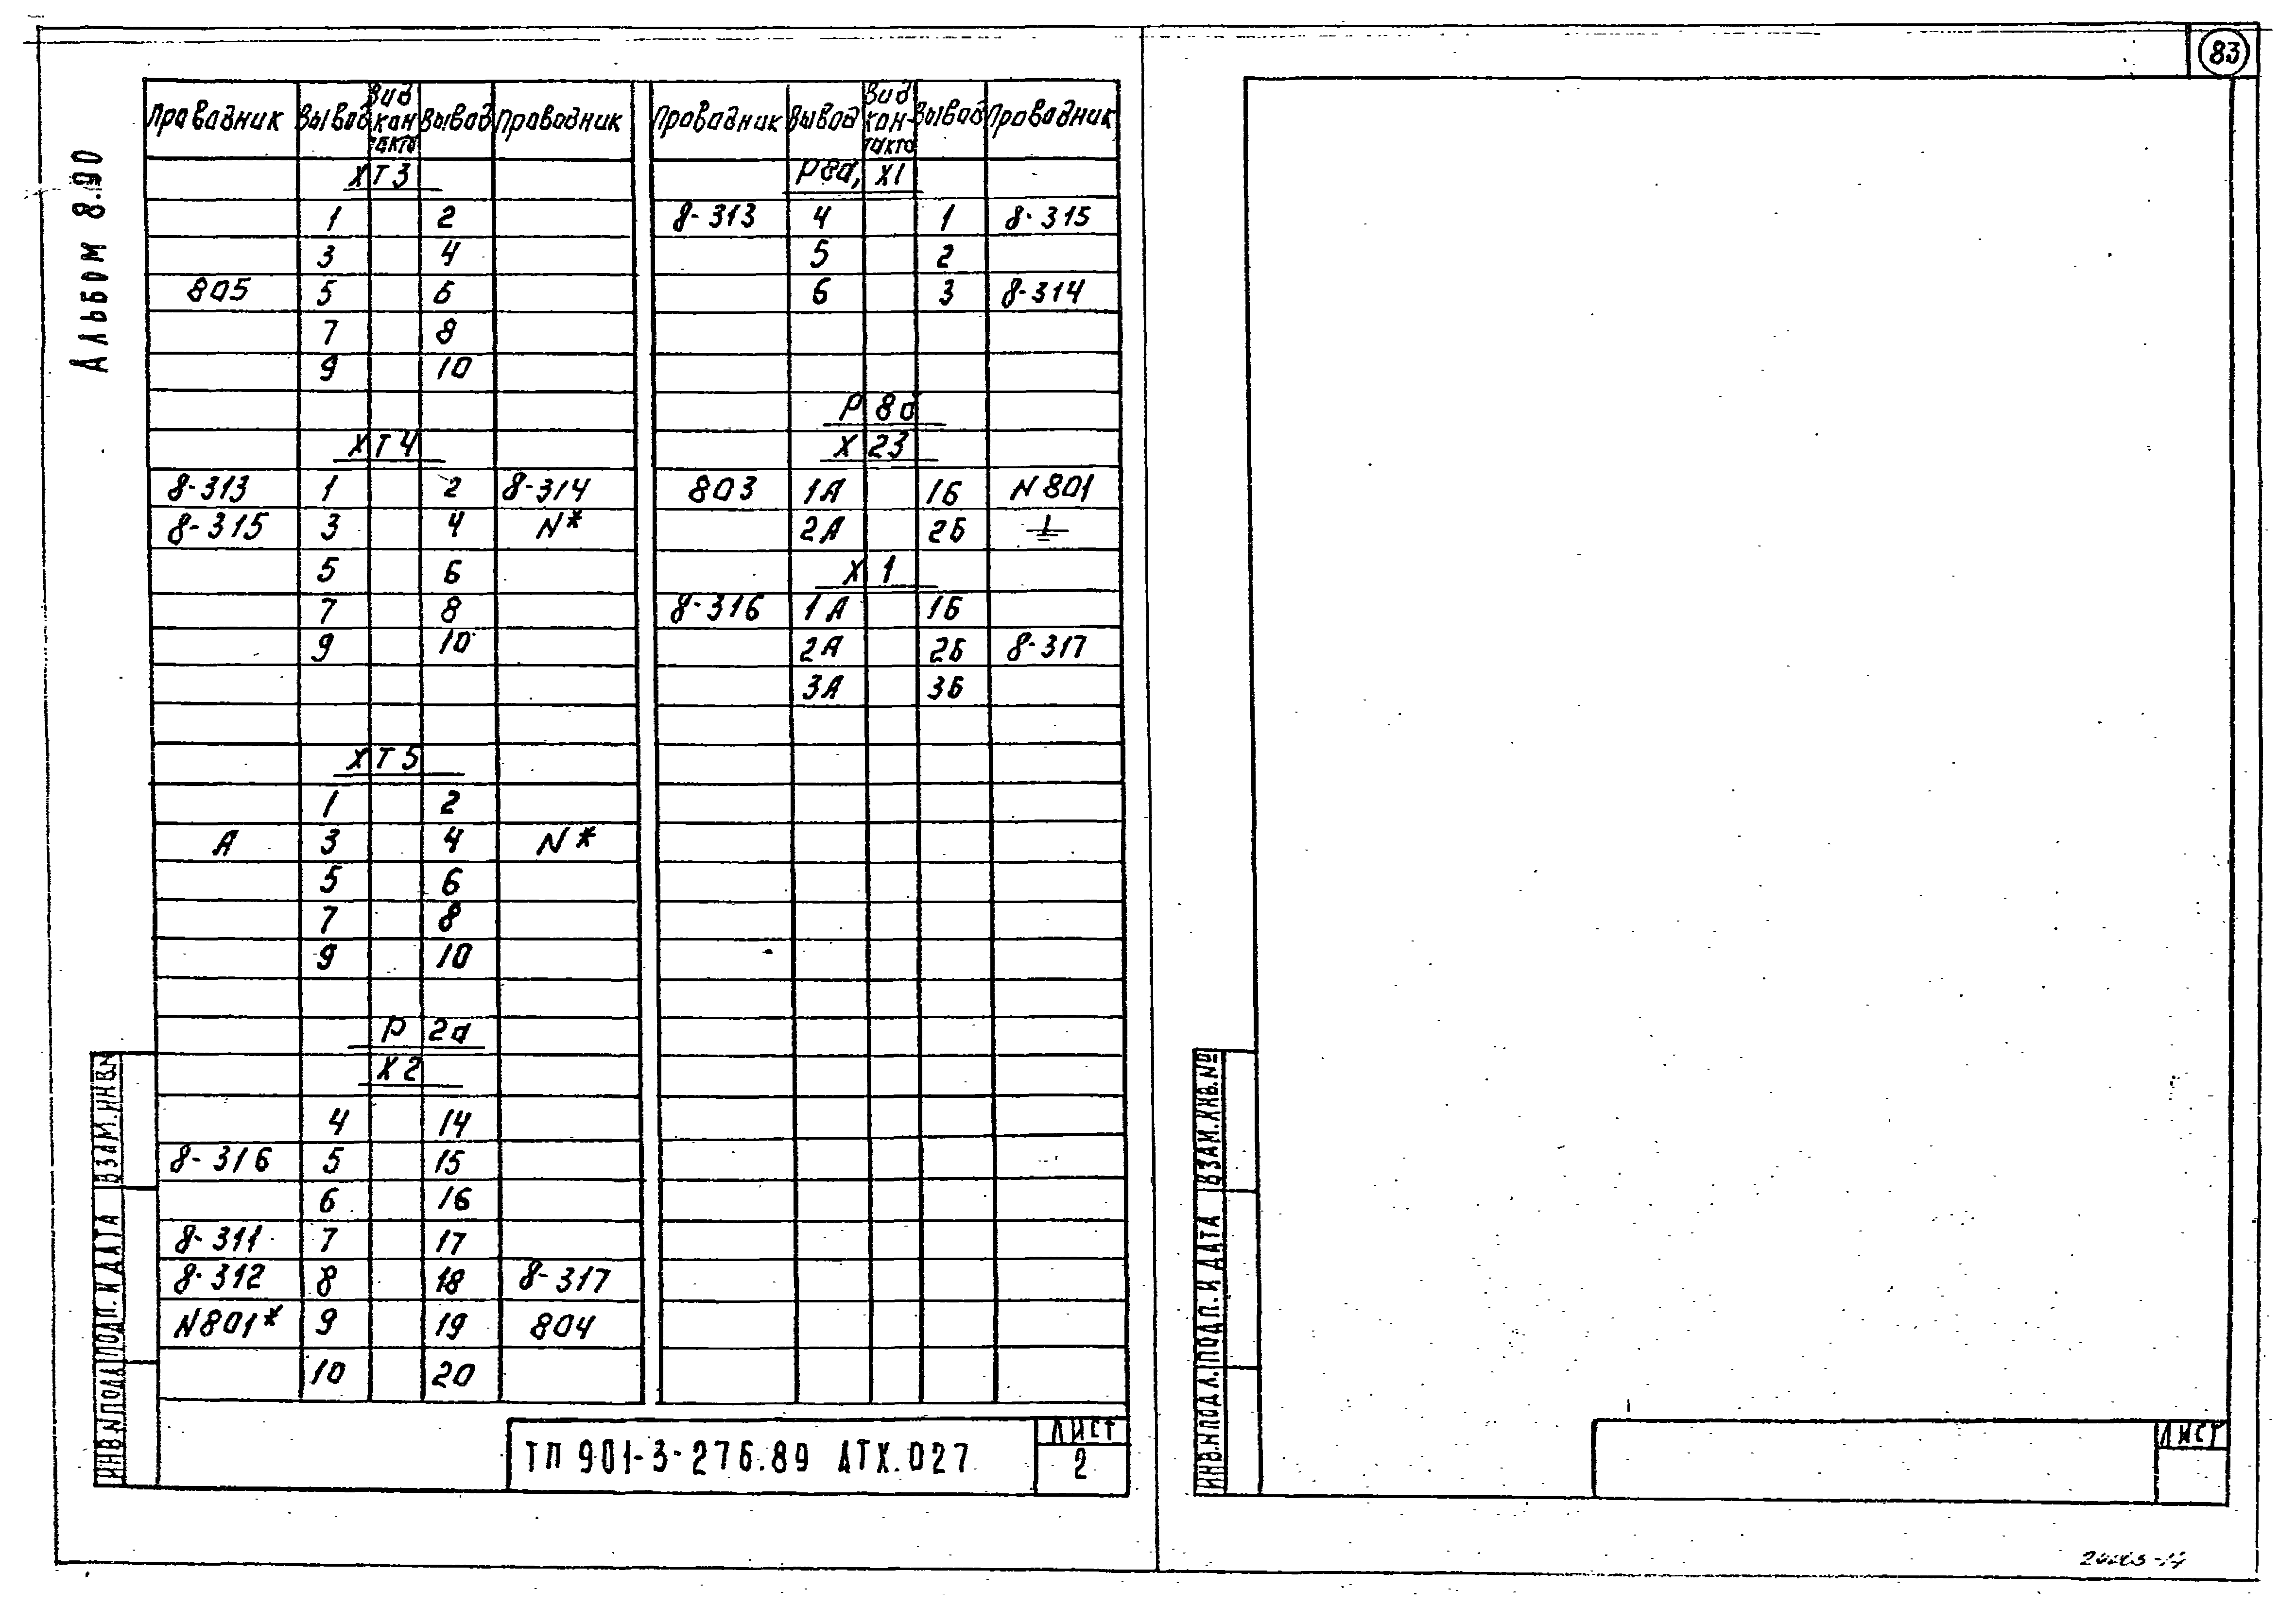 83
Альбом 8.90
Проводник Вывод Вид контакта Вывод Проводник
XT3
1 2
3 4
805 5 6
7 8
9 10
XT4
8-313 1 2 8-314
8-315 3 4 N*
5 6
7 8
9 10
XT5
1 2
А 3 4 N*
5 6
7 8
9 10
Р 2а
X2
4 14
8-316 5 15
6 16
8-311 7 17
8-312 8 18 8-317
N801* 9 19 804
10 20
Проводник Вывод Вид контакта Вывод Проводник
Р8а, X1
8-313 4 1 8-315
5 2
6 3 8-314
Р 8б
X 23
803 1А 1Б N801
2А 2Б
X 1
8-316 1А 1Б
2А 2Б 8-317
3А 3Б
ТП 901-3-276.89 АТХ.027
ЛИСТ
2
ИНВ.N ПОДЛ. ПОДП. И ДАТА ВЗАМ.ИНВ.N
ИНВ.N ПОДЛ. ПОДП. И ДАТА ВЗАМ.ИНВ.№
ЛИСТ